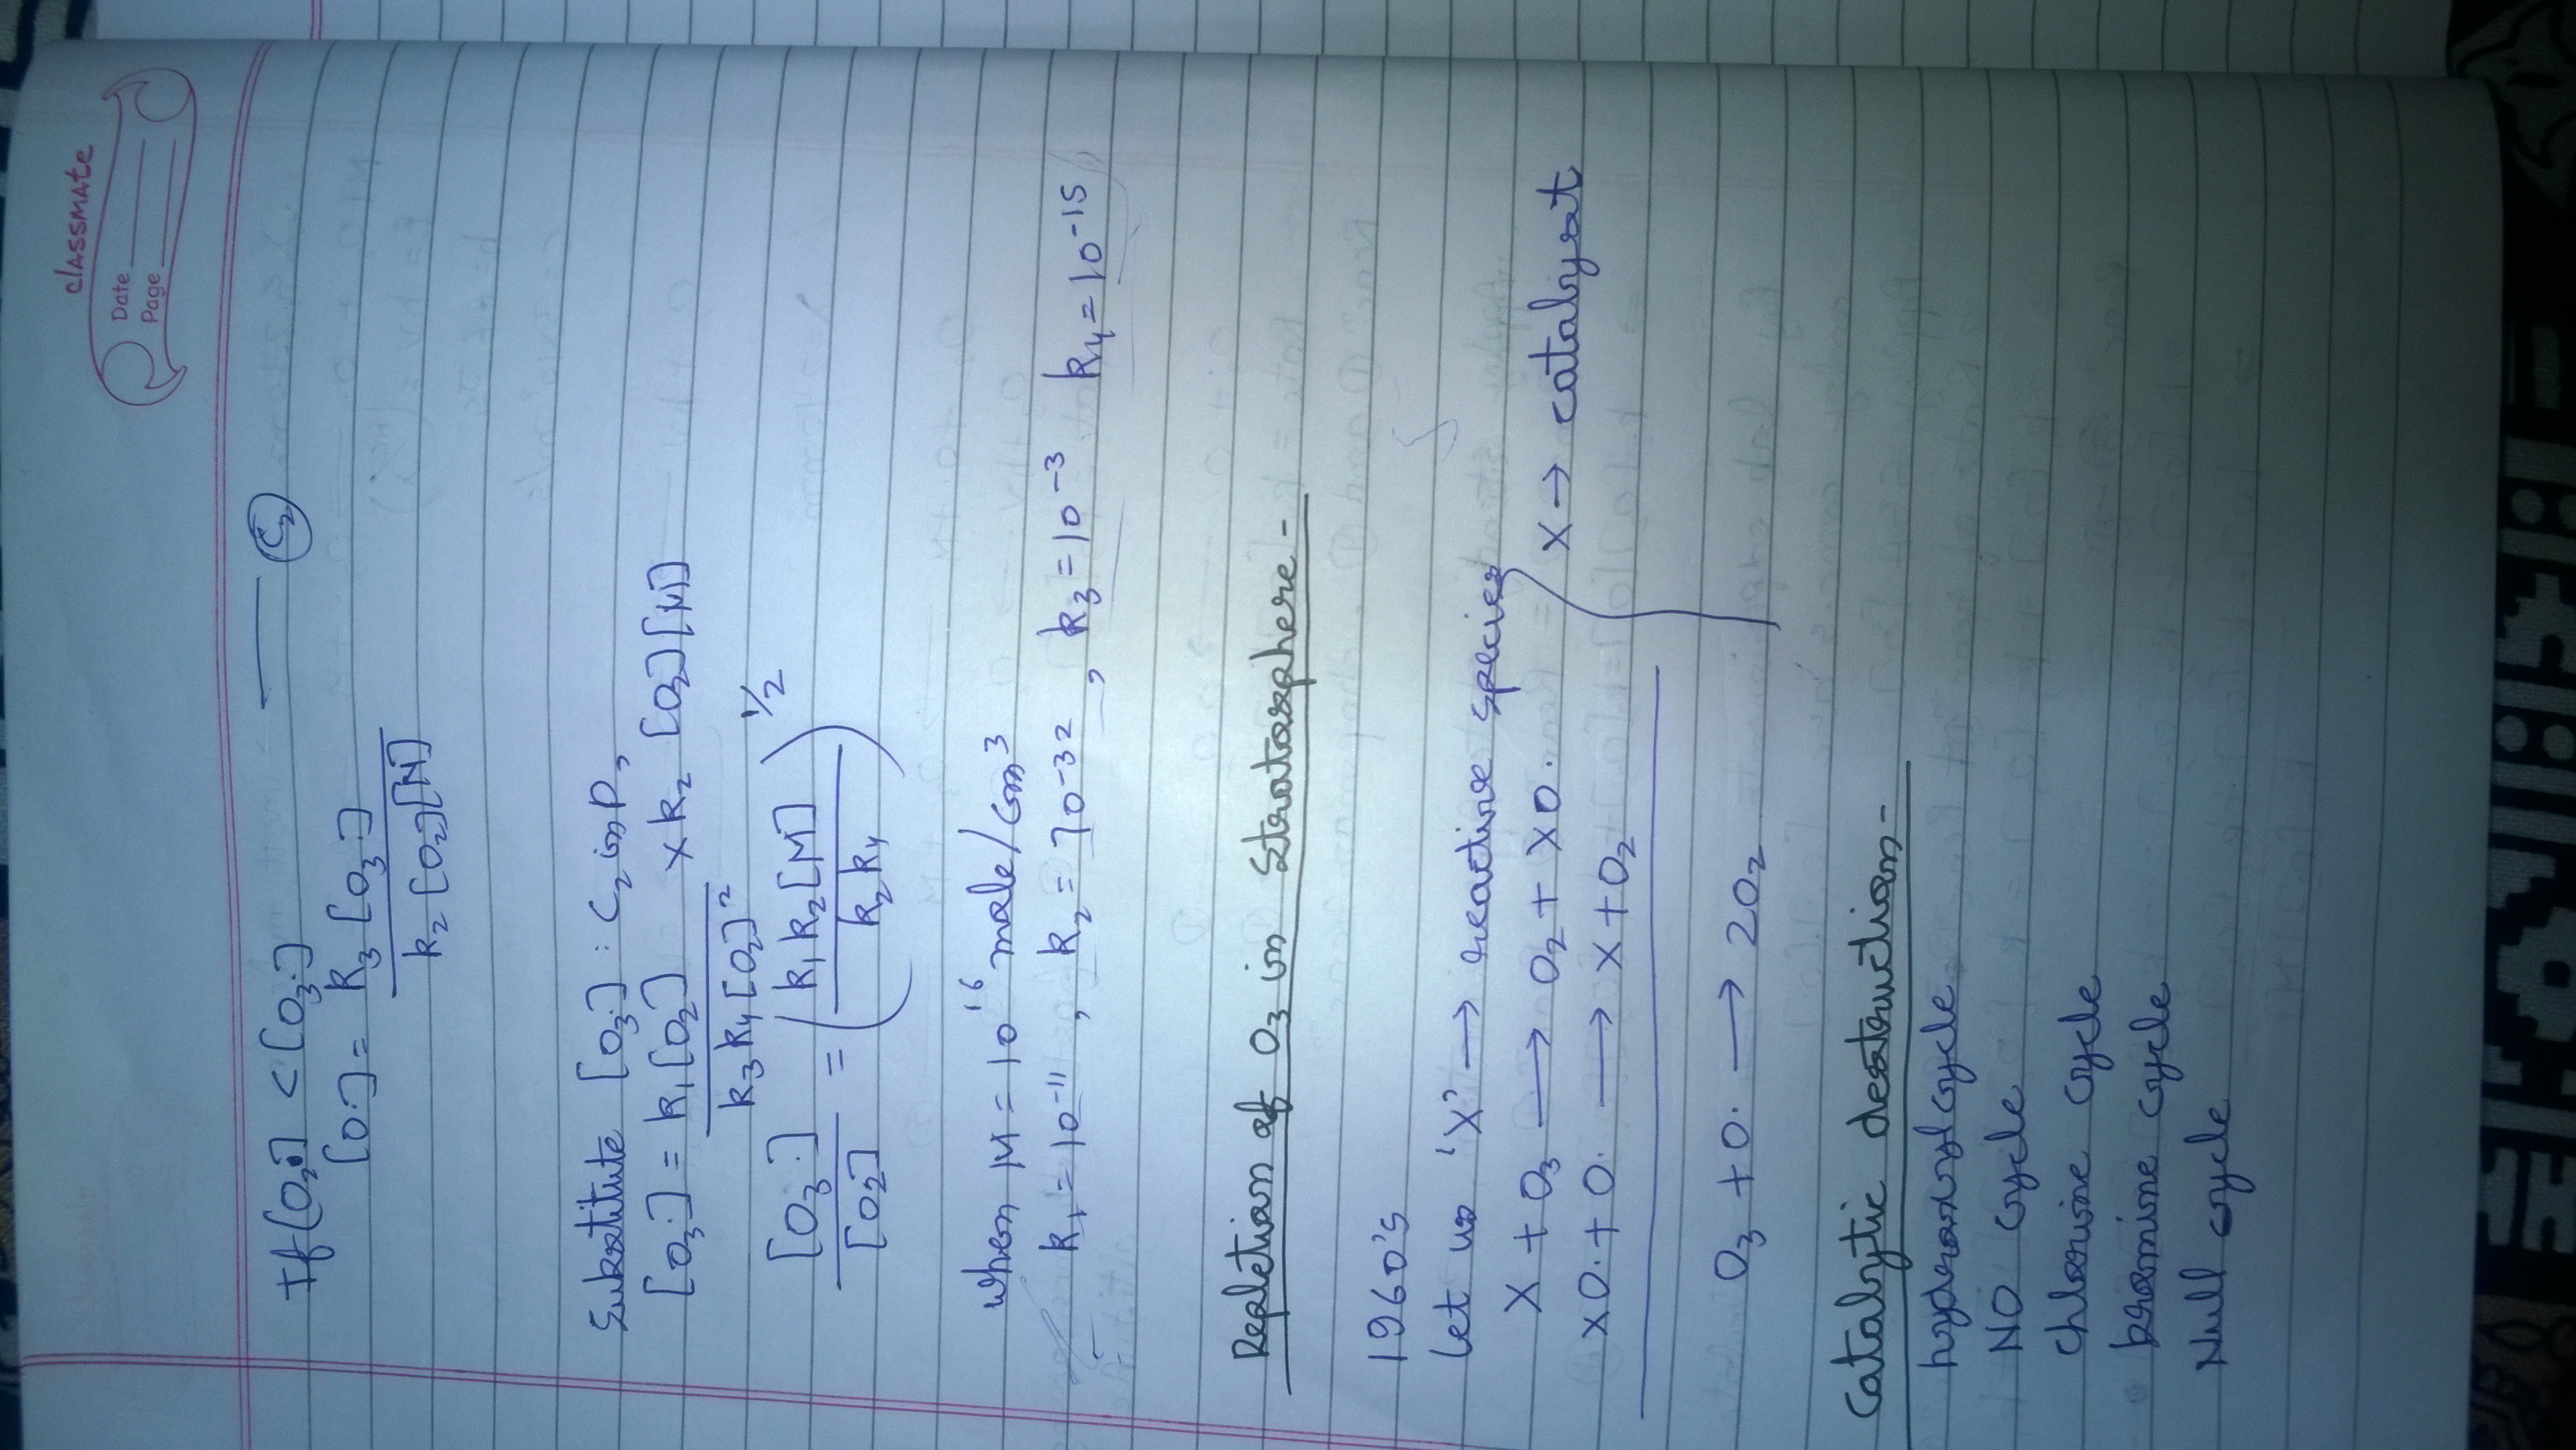 classmate
Date
Page
If [O2·] < [O3·] —— (C2)
[O·] = k3 [O3·]
k2 [O2][M]
Substitute [O3·] : C2 in D,
[O3·] = k1[O2] × k2 [O2][M]
k3 k4 [O2]²
[O3·] = (k1 k2 [M])^1/2
[O2] k2 k4
when M = 10^16 mole/cm³
k1 = 10^-11, k2 = 10^-32, k3 = 10^-3 k4 = 10^-15
Repletion of O3 in Stratosphere -
1960's
Let us 'X' → reactive species
X + O3 → O2 + XO·
XO· + O· → X + O2
X → catalyst
O3 + O· → 2O2
Catalytic destruction -
hydroxyl cycle
NO cycle
Chlorine cycle
bromine cycle
Null cycle